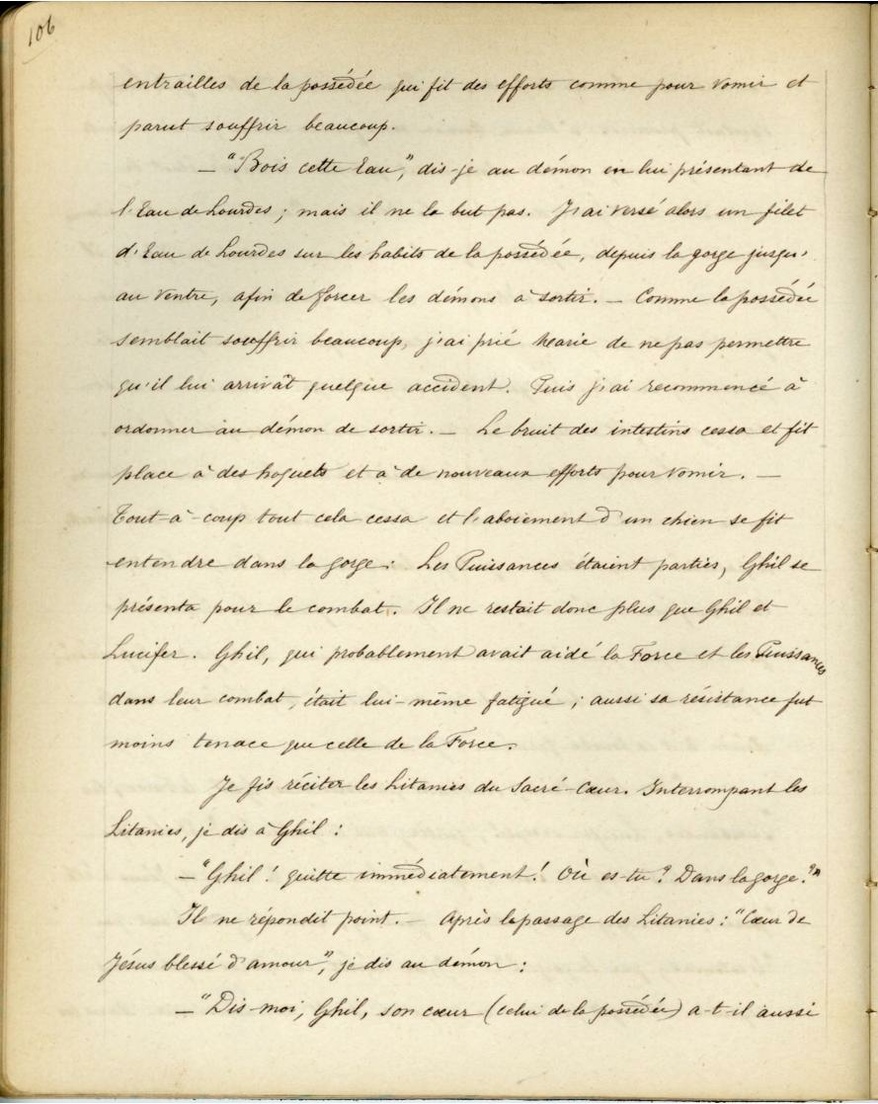 106
entrailles de la possédée qui fit des efforts comme pour vomir et
parut souffrir beaucoup.
— "Bois cette Eau", dis-je au démon en lui présentant de
l'Eau de Lourdes ; mais il ne la but pas. J'ai versé alors un filet
d'Eau de Lourdes sur les habits de la possédée, depuis la gorge jusqu'
au ventre, afin de forcer les démons à sortir. — Comme la possédée
semblait souffrir beaucoup, j'ai prié Marie de ne pas permettre
qu'il lui arrivât quelque accident. Puis j'ai recommencé à
ordonner au démon de sortir. — Le bruit des intestins cessa et fit
place à des hoquets et à de nouveaux efforts pour vomir. —
Tout-à-coup tout cela cessa et l'aboiement d'un chien se fit
entendre dans la gorge : Les Puissances étaient parties, Ghil se
présenta pour le combat. Il ne restait donc plus que Ghil et
Lucifer. Ghil, qui probablement avait aidé la Force et les Puissances
dans leur combat, était lui-même fatigué ; aussi sa résistance fut
moins tenace que celle de la Force.
Je fis réciter les Litanies du Sacré-Cœur. Interrompant les
Litanies, je dis à Ghil :
— "Ghil ! quitte immédiatement ! Où es-tu ? Dans la gorge ?"
Il ne répondit point. — Après le passage des Litanies : "Cœur de
Jésus blessé d'amour", je dis au démon :
— "Dis-moi, Ghil, son cœur (celui de la possédée) a-t-il aussi